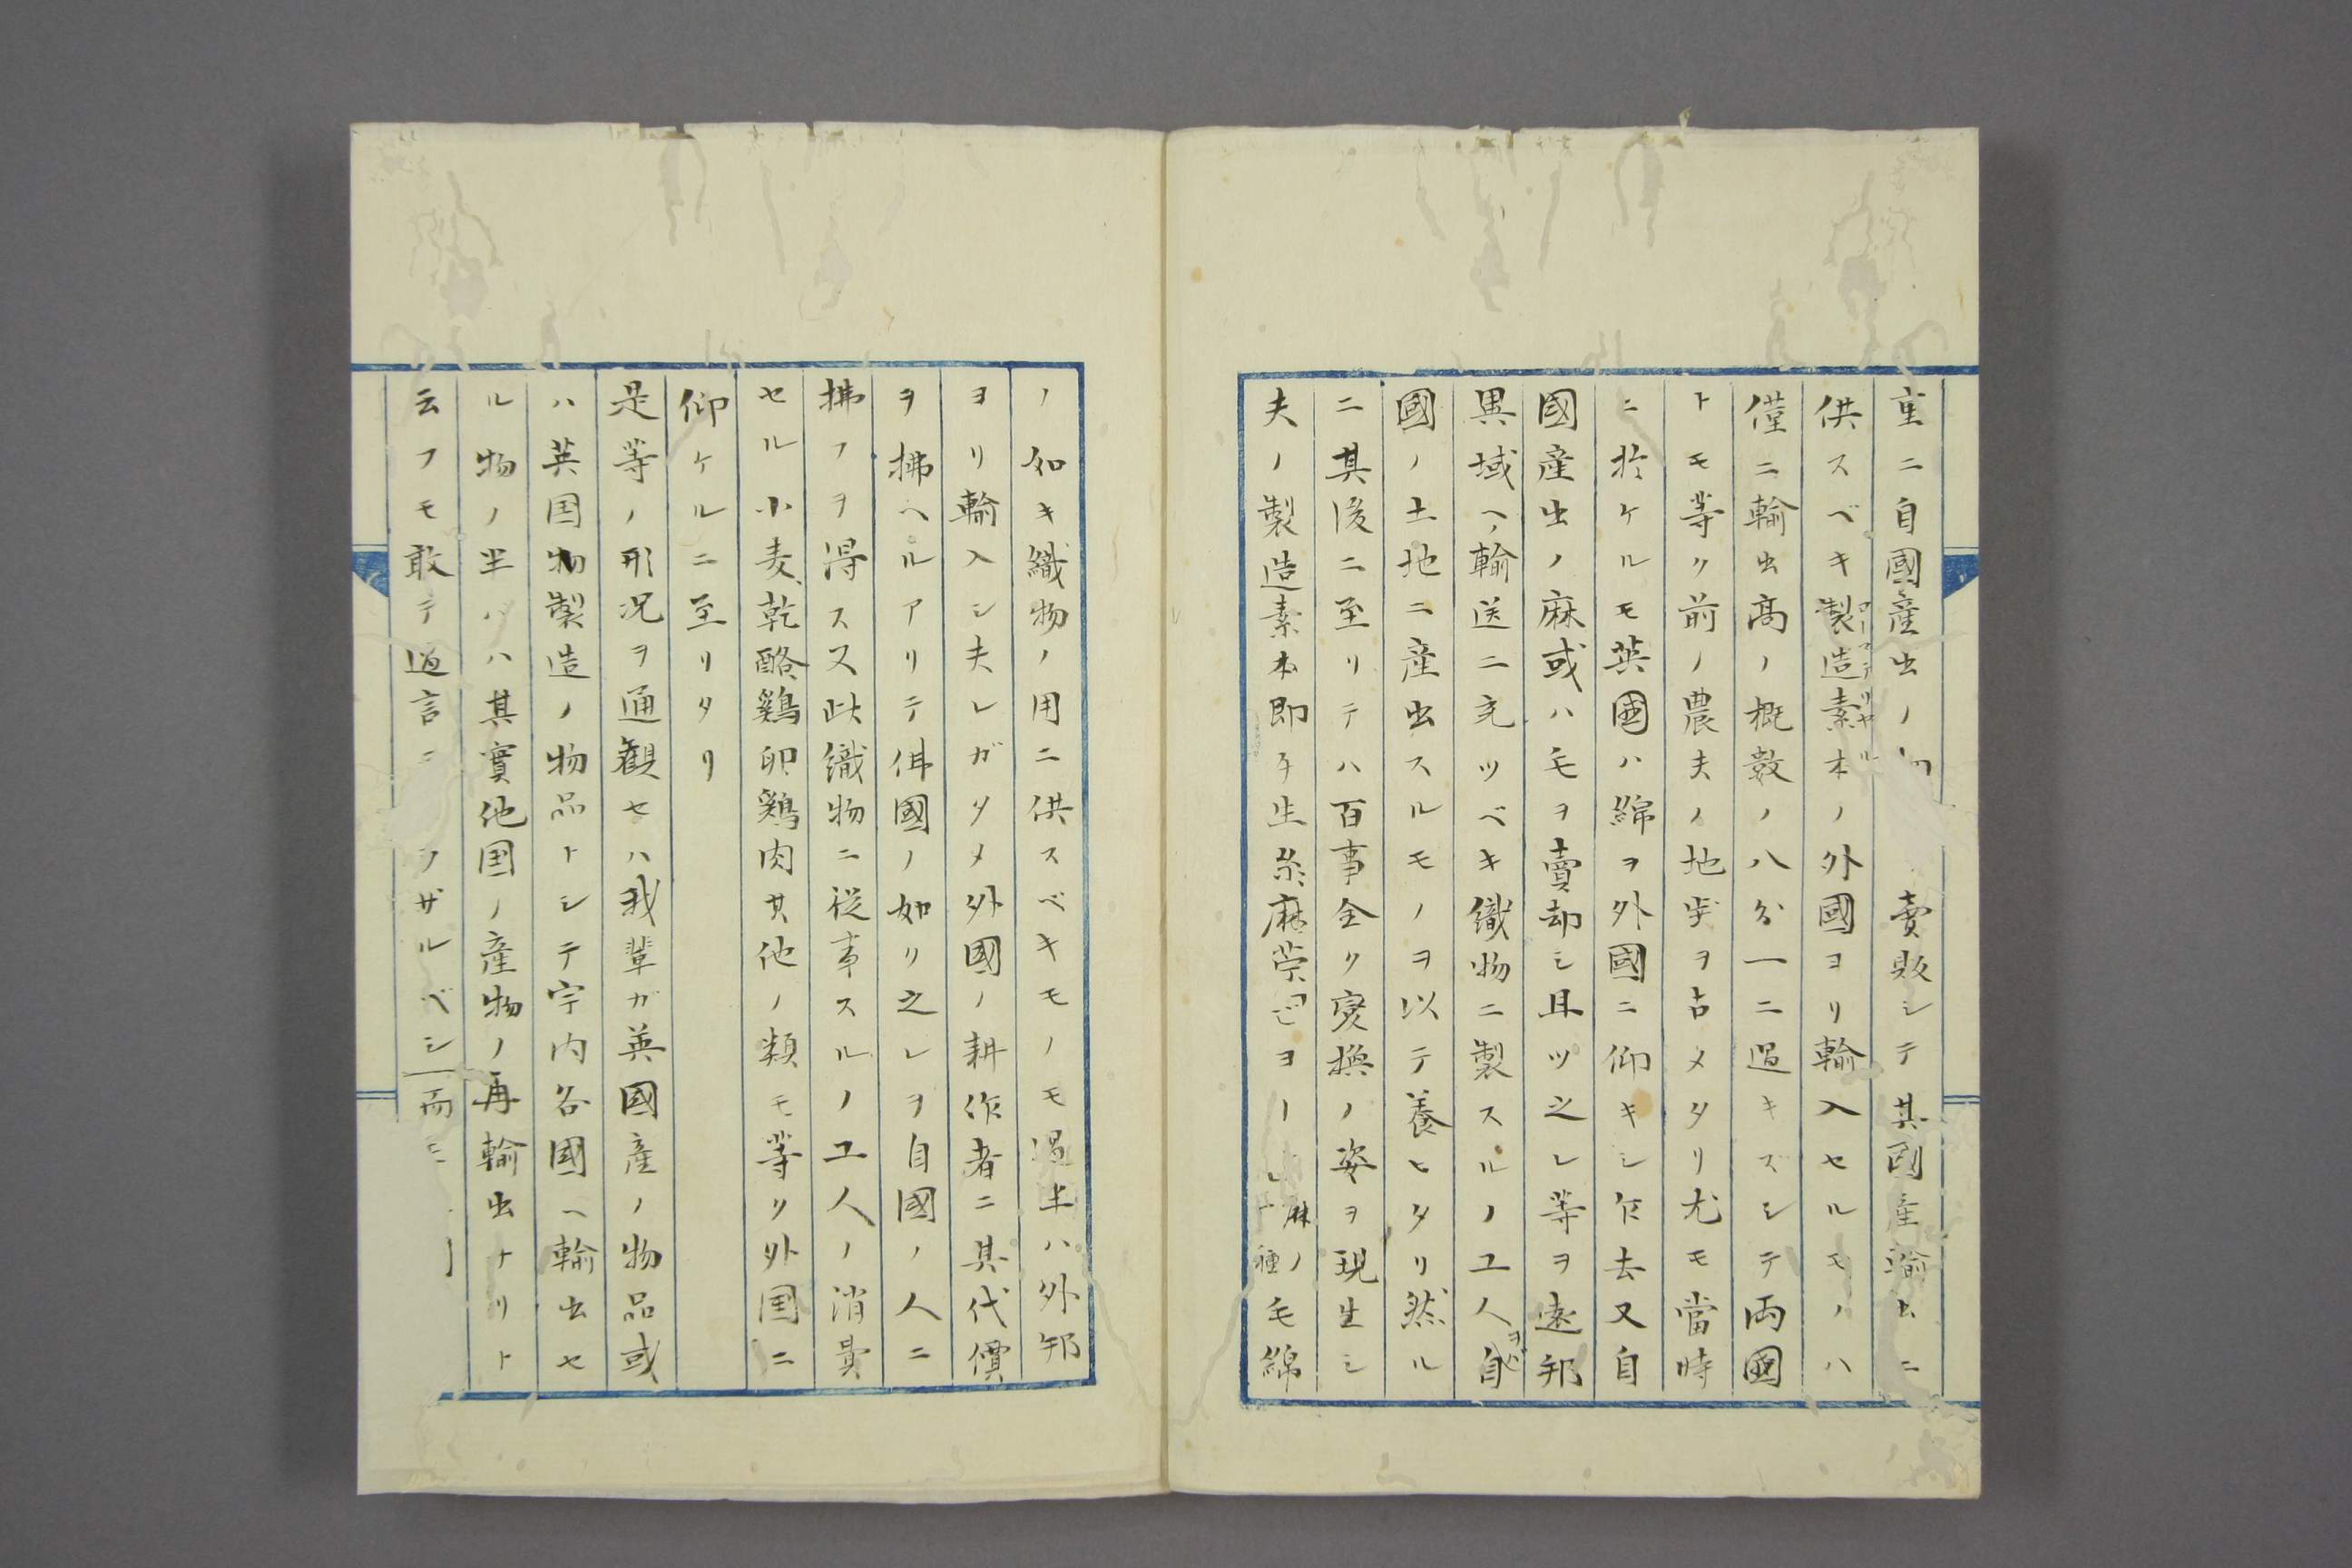 重ニ自國産出ノ 賣販シテ其國産輸出ニ
供スベキ製造素本ノ外國ヨリ輸入セルモノハ
ローマテリヤル
僅ニ輸出高ノ概數ノ八分一ニ過キズシテ両國
トモ等ク前ノ農夫ノ地步ヲ占メタリ尤モ當時
ニ於ケルモ英國ハ綿ヲ外國ニ仰キシ乍去又自
國産出ノ麻或ハ毛ヲ賣却シ且ツ之レ等ヲ遠邦
異域ヘ輸送ニ充ツベキ織物ニ製スルノ工人自
國ノ土地ニ産出スルモノヲ以テ養ヒタリ然ル
ニ其後ニ至リテハ百事全ク変換ノ姿ヲ現生シ
夫ノ製造素本即チ生糸麻 麻ノ種毛綿
ノ如キ織物ノ用ニ供スベキモノモ過半ハ外邦
ヨリ輸入シ夫レガタメ外國ノ耕作者ニ其代價
ヲ拂ヘルアリテ佛國ノ如リ之レヲ自國ノ人ニ
拂フヲ得ス又此織物ニ從事スルノ工人ノ消費
セル小麦乾酪鷄卵鷄肉其他ノ類モ等リ外国ニ
仰ケルニ至リタリ
是等ノ形況ヲ通観セハ我輩ガ英國産ノ物品或
ハ英国物製造ノ物品トシテ宇内各國ヘ輸出セ
ル物ノ半バハ其實他国ノ産物ノ再輸出ナリト
云フモ敢テ過言ニ ラザルベシ而